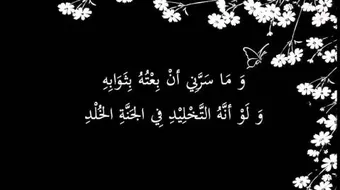 وَ مَا سَرَّنِي أنْ بِعْتُهُ بِثَوَابِهِ
وَ لَوْ أنَّهُ التَّخْلِيْدِ فِي الجَنَّةِ الخُلْدِ